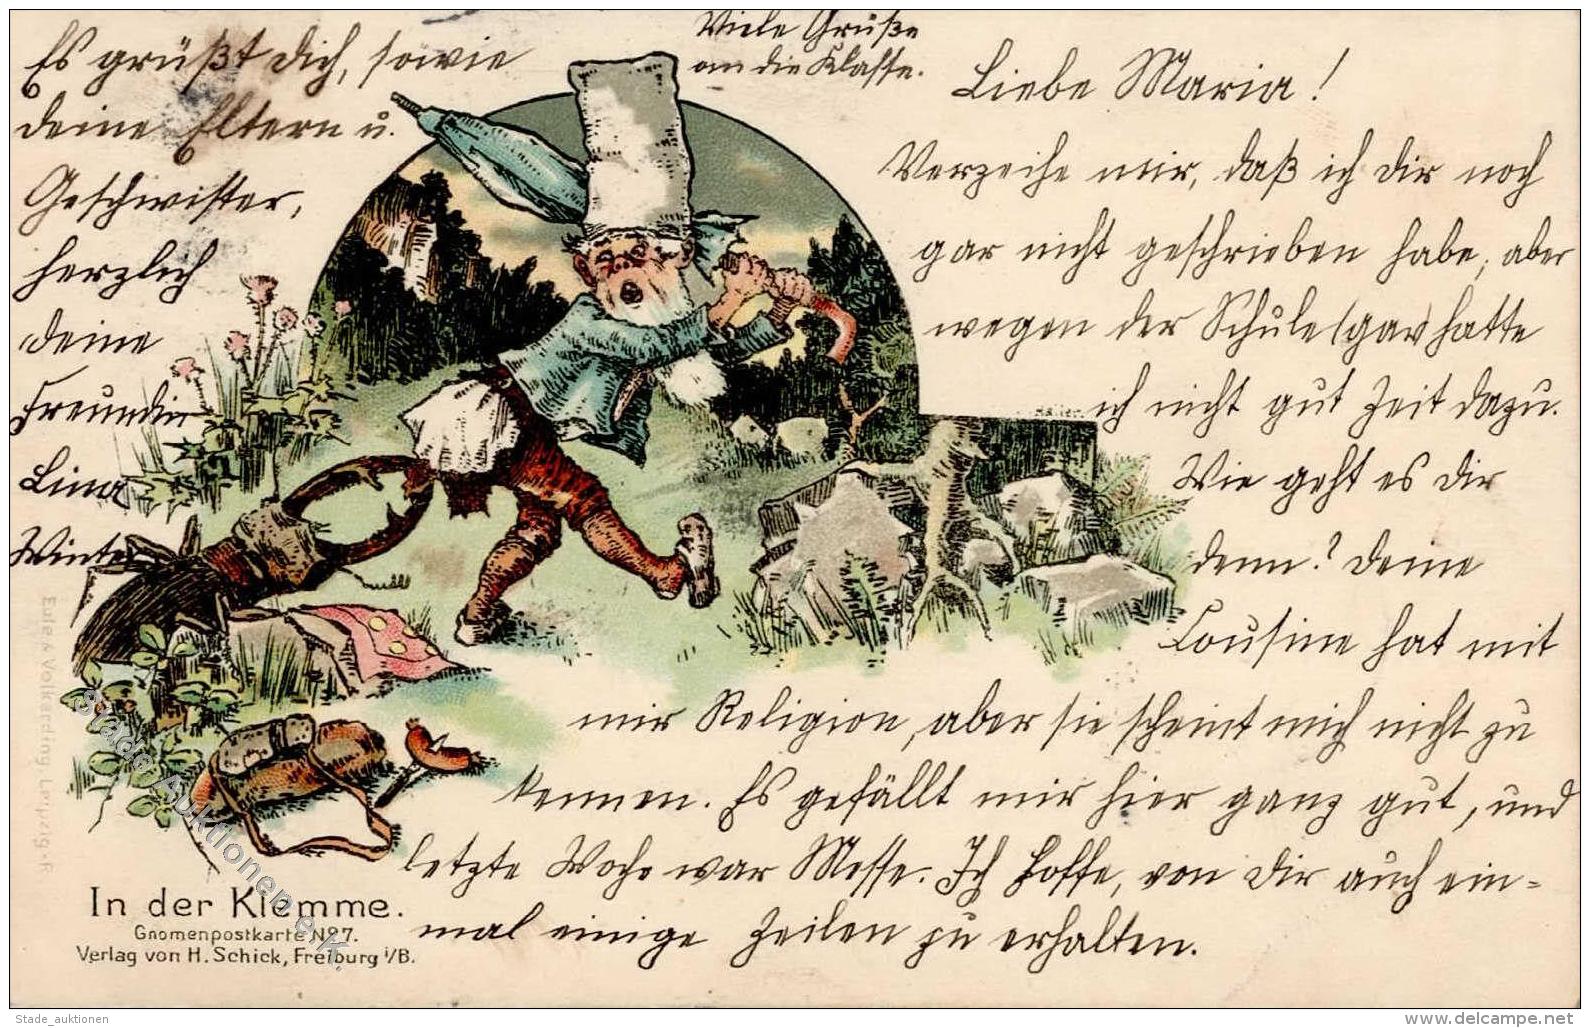 Viele Grüße
an die Klasse.
Liebe Maria!
Verzeihe mir, daß ich dir noch
gar nicht geschrieben habe, aber
wegen der Schule (gar) hatte
ich nicht gut Zeit dazu.
Wie geht es dir
denn? Deine
Cousine hat mit
mir Religion, aber sie scheint mich nicht zu
kennen. Es gefällt mir hier ganz gut, und
letzte Woche war Messe. Ich hoffe, von dir auch ein-
mal einige Zeilen zu erhalten.
Es grüßt dich, sowie
deine Eltern u.
Geschwister,
herzlich
deine
Freundin
Lina
Winter
In der Klemme.
Gnomenpostkarte No 7.
Verlag von H. Schick, Freiburg i/B.
Eule & Volkerding, Leipzig-R
Stade Auktionen e.K.
Stade_auktionen
www.delcampe.net